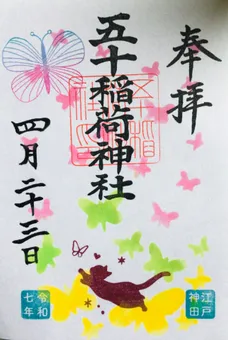 奉拝
五十稲荷神社
四月二十三日
江戸
神田
令和
七年